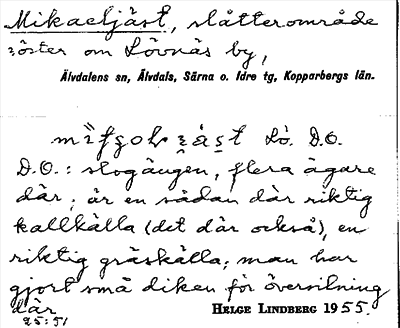 Mikaeljäst, slåtterområde
öster om Lövnäs by,
Älvdalens sn, Älvdals, Särna o. Idre tg, Kopparbergs län.
Lö. D.O.
D.O.: slogången, flera ägare
där; är en sådan där riktig
kallkälla (det där också), en
riktig gräskälla; man har
gjort små diken för översilning
där
HELGE LINDBERG 1955.
25:51